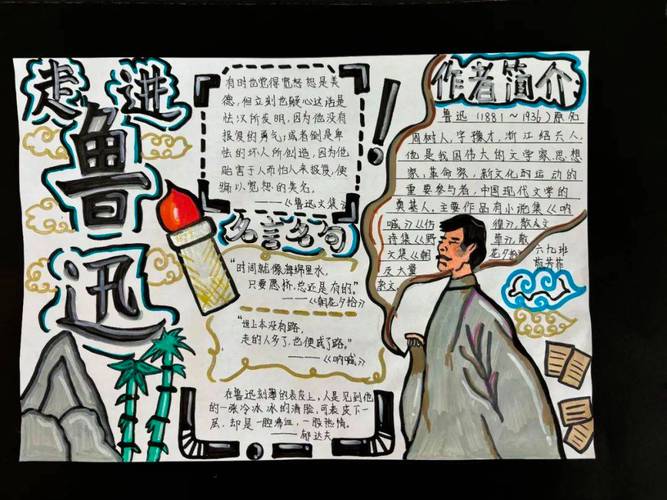 走进
鲁迅
有时也觉得宽恕是美
德,但立刻也疑心这话是
怯汉所发明,因为他没有
报复的勇气;或者倒是卑
怯的坏人所创造,因为他
贻害于人而怕人来报复,便
骗以宽恕的美名。
——《鲁迅文集》
名言名句
“时间就像海绵里水,
只要愿挤,总还是有的。”
——《朝花夕拾》
“世上本没有路,
走的人多了,也便成了路。”
——《呐喊》
在鲁迅刻薄的表皮上,人是见到他
的一张冷冰冰的清脸,可表皮下一
层,却是一腔沸血,一股热情。
——郁达夫
作者简介
鲁迅(1881~1936)原名
周树人,字豫才,浙江绍兴人,
他是我国伟大的文学家思想
家,革命家,新文化的运动的
重要参与者,中国现代文学的
奠基人。主要作品有小说集《呐
喊》《仿徨》,散文
诗集《野草》散
文集《朝花夕拾》
及大量
杂文。
六九班